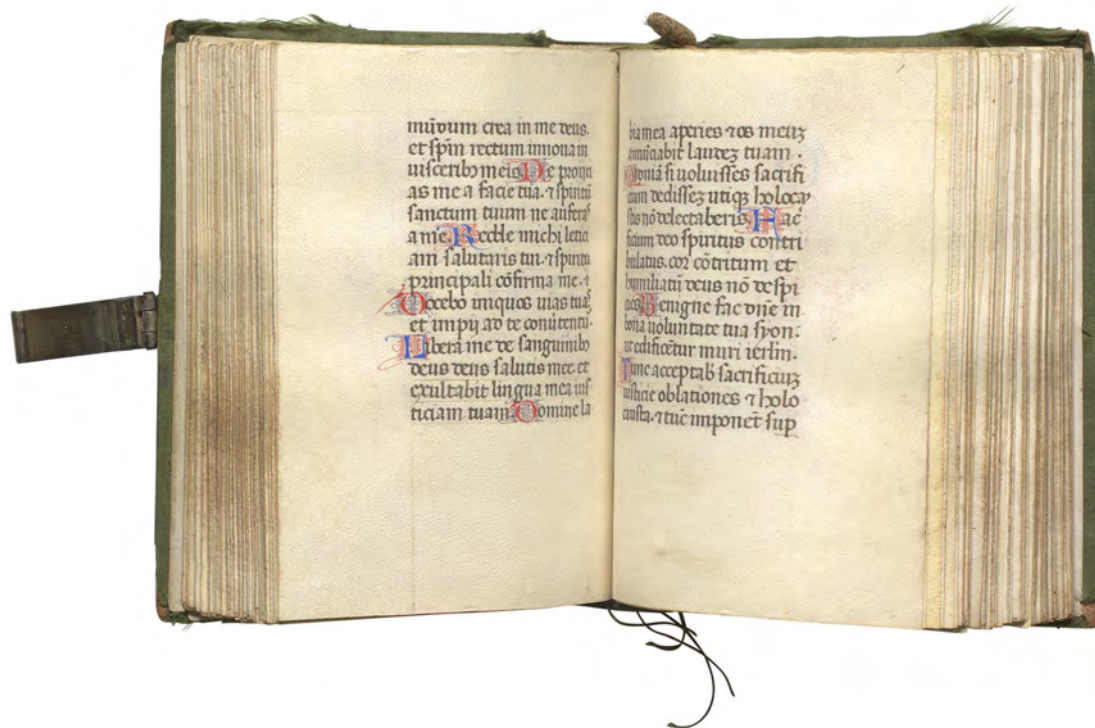 mūdum crea in me deus.
et sp̄m rectum innoua in
uisceribꝫ meis. Ne proijci
as me a facie tua. ⁊ spiritū
sanctum tuum ne auferas
a me. Redde michi letici
am salutaris tui. ⁊ spiritu
principali cōfirma me.
Docebo iniquos uias tuas
et impij ad te conuertentur.
Libera me de sanguinibꝫ
deus deus salutis mee. et
exultabit lingua mea ius
ticiam tuam. Domine la
bia mea aperies ⁊ os meuꝫ
annūciabit laudeꝫ tuam.
Qioniā si uoluisses sacrifi
cium dedisseꝫ utiqꝫ holocau
stis nō delectaberis. Sac
ficium deo spiritus contri
bulatus. cor cōtritum et
humiliatū deus nō despi
cies. Benigne fac dn̄e in
bona uoluntate tua syon.
ut edificētur muri ierl̄m.
Tunc acceptab sacrificiuꝫ
iusticie oblationes ⁊ holo
causta. ⁊ tūc imponēt sup